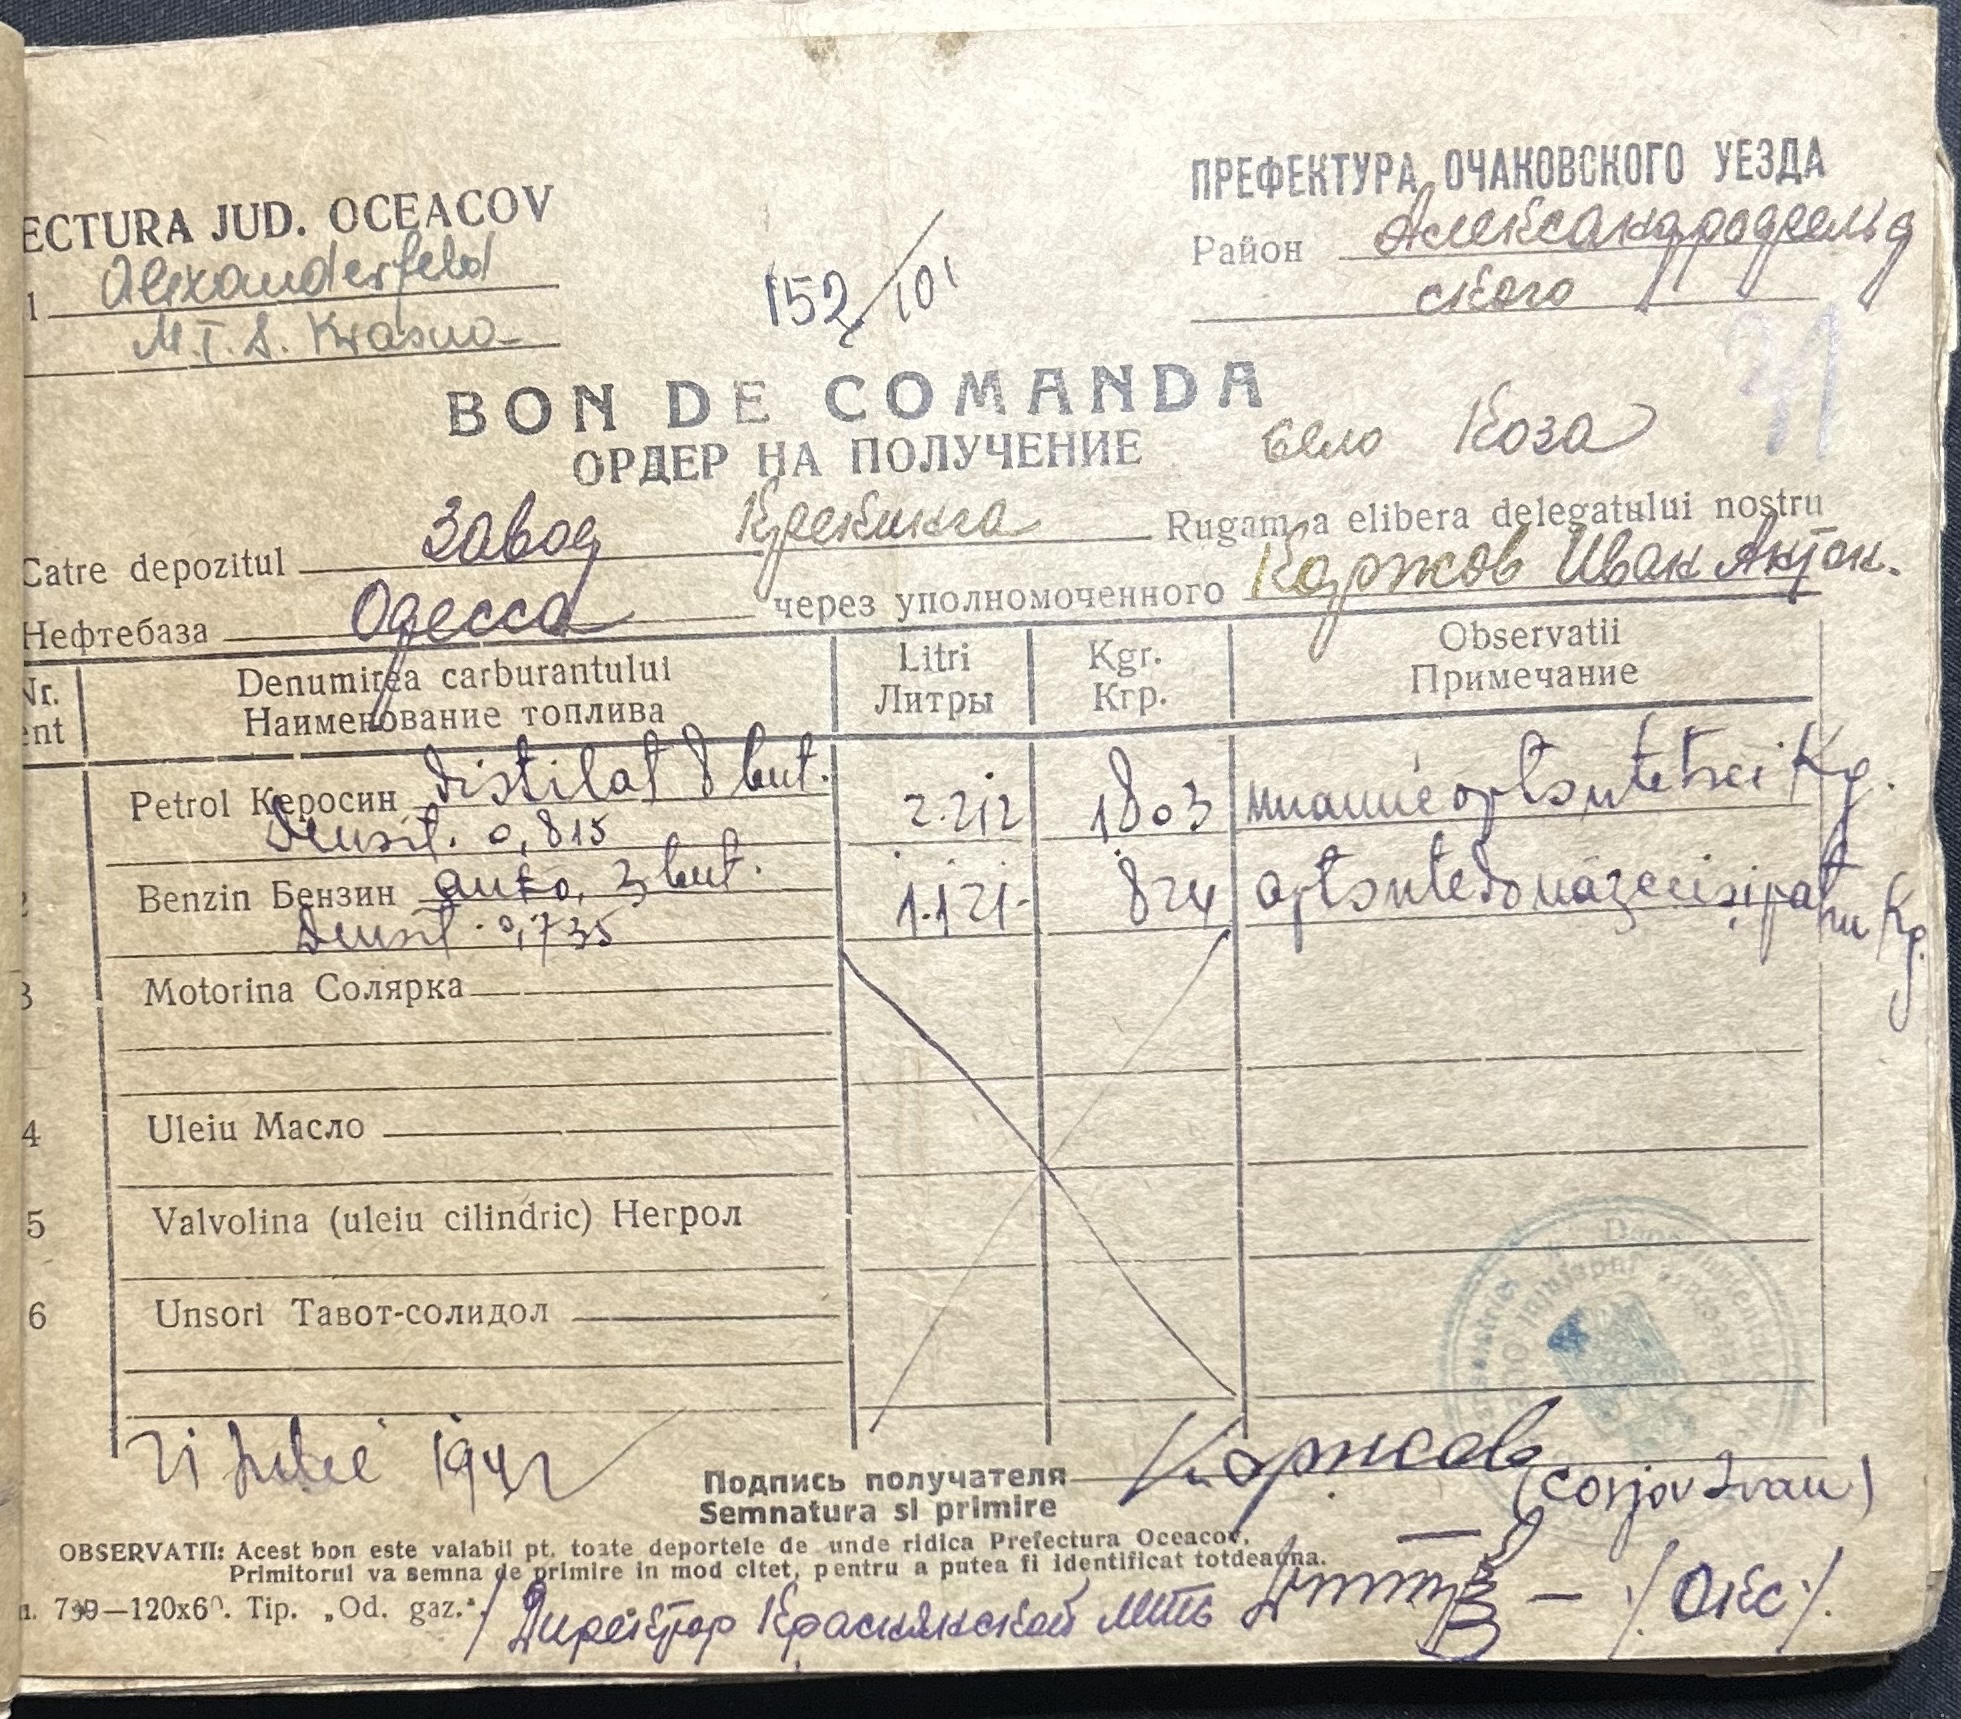 ECTURA JUD. OCEACOV
Alexanderfeld
M.T.S. Krasna
152/101
ПРЕФЕКТУРА ОЧАКОВСКОГО УЕЗДА
Район Александрофельд
ского
BON DE COMANDA
ОРДЕР НА ПОЛУЧЕНИЕ
село Коза
Catre depozitul Завод Крекинга Rugam a elibera delegatului nostru
Нефтебаза Одесса через уполномоченного Коржов Иван Антон.
Nr. Denumirea carburantului Litri Kgr. Observatii
ent Наименование топлива Литры Кгр. Примечание
Petrol Керосин distilat 8 but. 2.212 1803 unamieoptsutetrei Kg.
Densit. 0,815
Benzin Бензин auto, 3 but. 1.121 824 optsutedouăzecişipatru Kg.
Densit. 0,735
3 Motorina Солярка
4 Uleiu Масло
5 Valvolina (uleiu cilindric) Негрол
6 Unsori Тавот-солидол
21 Iulie 1942
Подпись получателя Коржов
Semnatura si primire (Corjov Ivan)
OBSERVATII: Acest bon este valabil pt. toate deportele de unde ridica Prefectura Oceacov.
Primitorul va semna de primire in mod citet, pentru a putea fi identificat totdeauna.
739—120x60. Tip. „Od. gaz.“
Директор Краснянской МТС